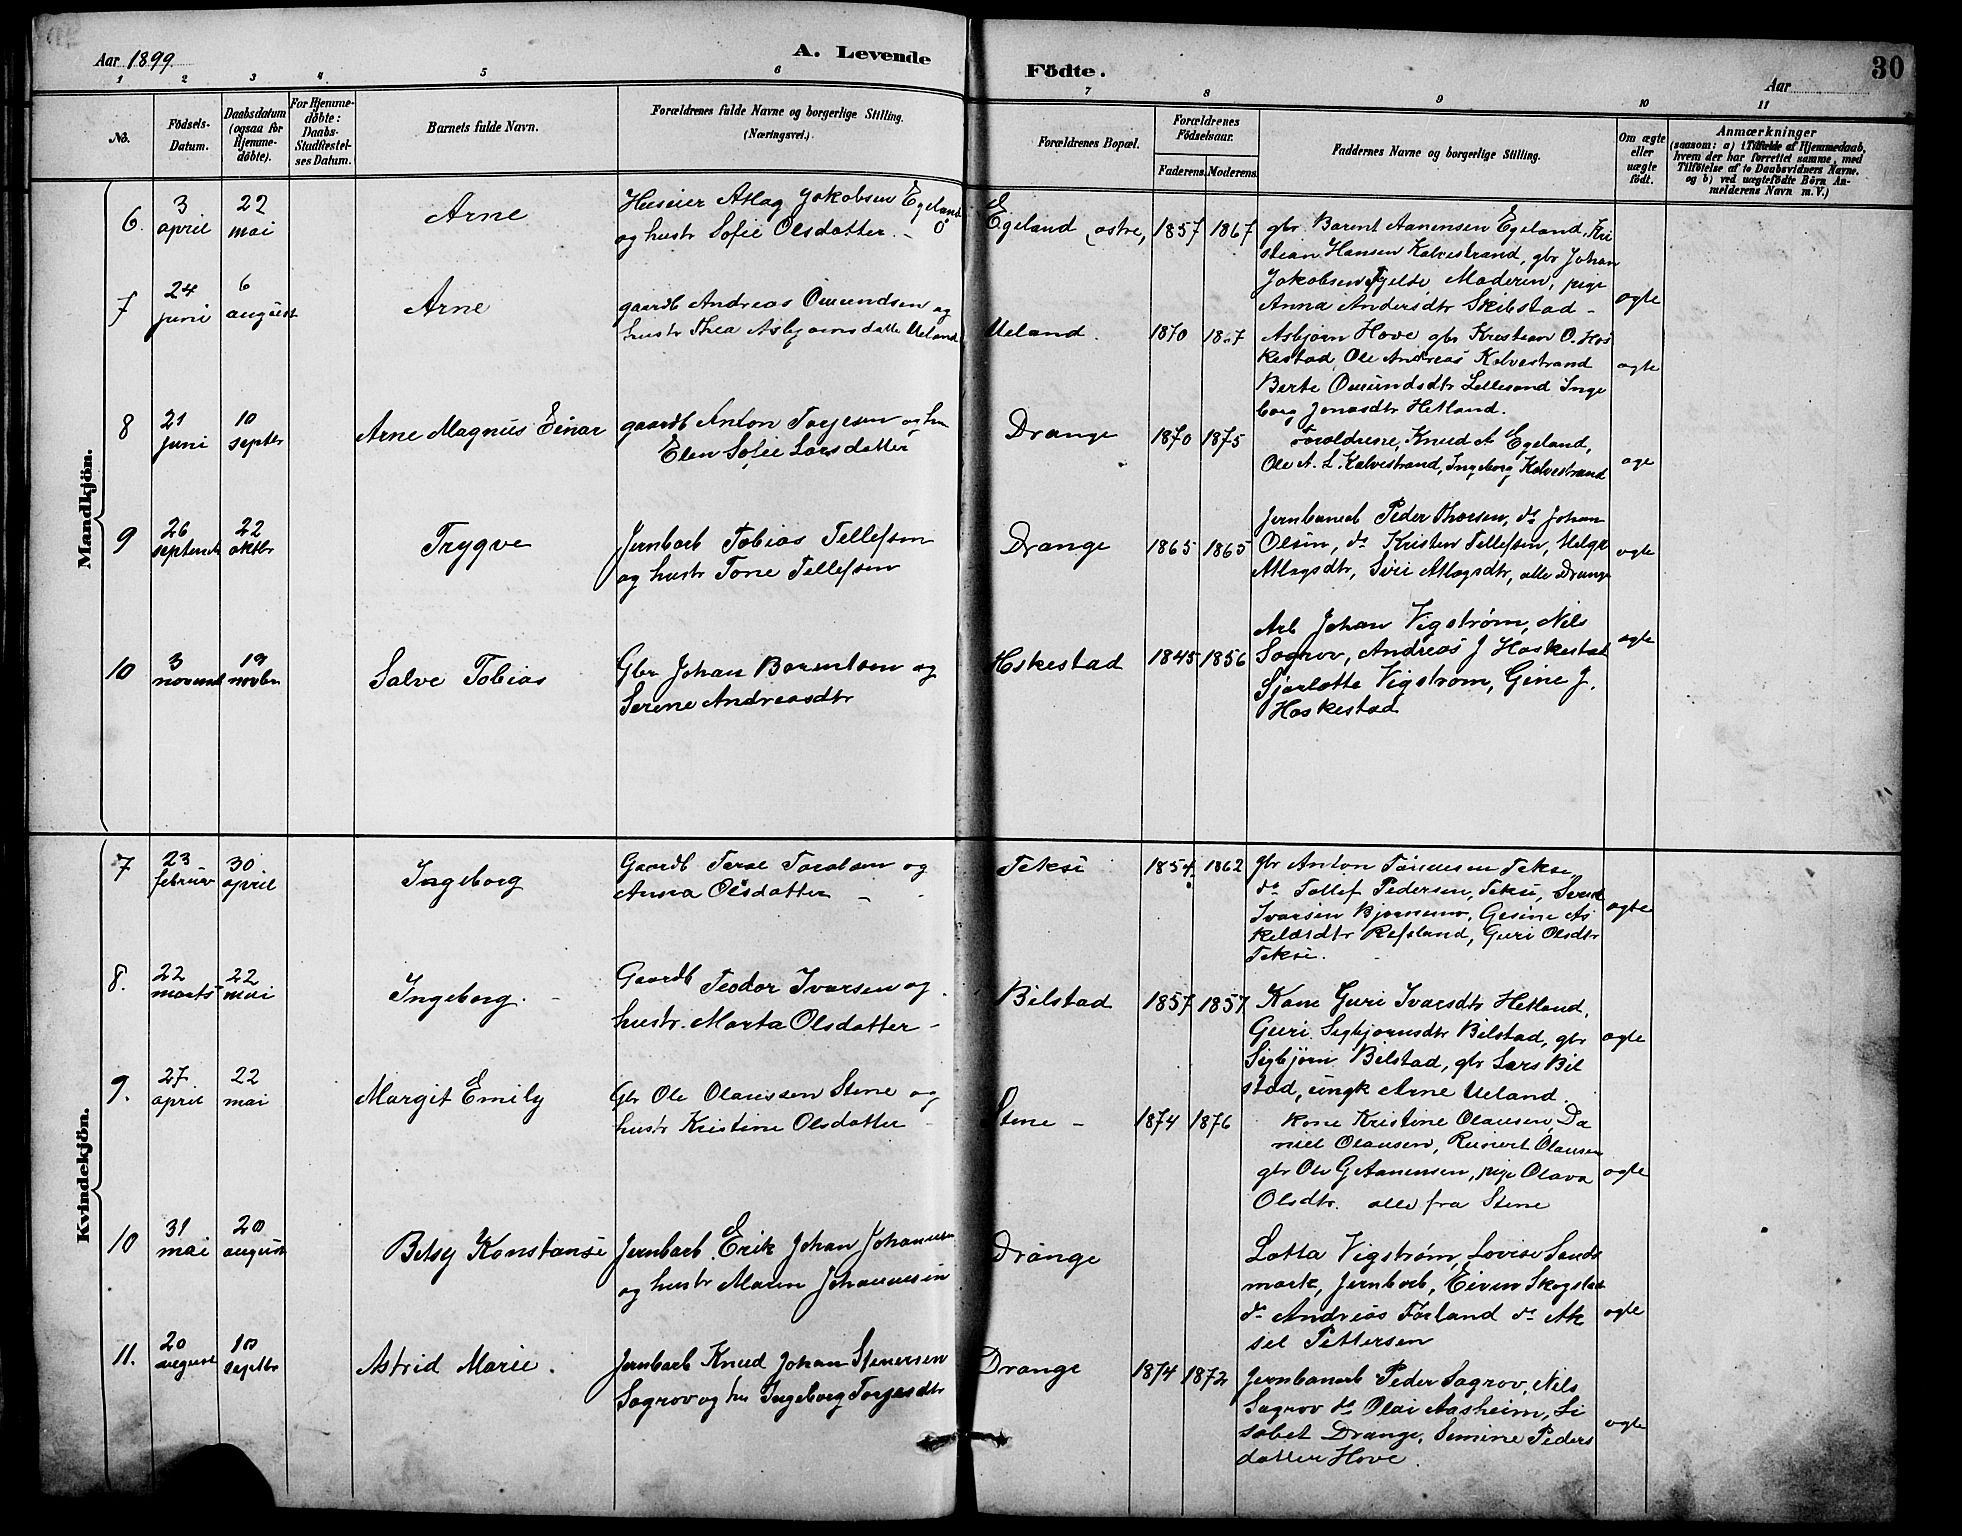 Aar 1899.
A. Levende
Födte.
Aar
30
1 2 3 4 5 6 7 8 9 10 11
No.
Födsels-
Datum.
Daabsdatum
(ogsaa for
Hjemme-
döbte).
For Hjemme-
döbte:
Daabs-
Stadfæstel-
ses Datum.
Barnets fulde Navn.
Forældrenes fulde Navne og borgerlige Stilling.
(Næringsvei.)
Forældrenes Bopæl.
Forældrenes
Födselsaar.
Faderens. Moderens.
Faddernes Navne og borgerlige Stilling.
Om ægte
eller
uægte
födt.
Anmærkninger
(saasom: a) i Tilfælde af Hjemmedaab,
hvem der har forrettet samme, med
Tilföielse af to Daabsvidners Navne.
og b) ved uægtefödte Börn An-
melderens Navn m. V.)
Mandkjön.
6. 3 april
22 mai
Arne
Huseier Atlag Jakobsen Egeland
og hustr Sofie Olsdatter.
Egeland østre,
1857 1867
gbr Barent Aanensen Egeland, Kri
stian Hansen Kalvestrand, gbr Johan
Jakobsen Moderen, pige
Anna Andersdtr Skibstad
ægte
7 24 juni
6 august
Arne
gaardb Andreas Omundsen og
hustr Thea Asbjørnsdatter Ueland
Ueland.
1870
Asbjørn Hove gbr Kristian O. Hos
kestad, Ole Andreas Kalvestrand
Berte Omundsdtr Lillesand Inge
borg Jonasdtr Hetland.
ægte
8 21 juni
10 septbr
Arne Magnus Einar
gaardb Anton Torjesen og hu
Elen Sofie Larsdatter
Drange
1870 1875
Forældrene, Knud A Egeland,
Ole A. L. Kalvestrand, Ingeborg Kalvestrand
9 26
22 oktbr
Trygve
Jernbarb Tobias Tellefsen
og hustr Tone Tellefsen
Drange
1865 1865
Jernbaneb Peder Thorsen, do Johan
Olsen, do Kristen Tellefsen, Helge
Atlagsdtr, Siri Atlagsdtr, alle Drange
ægte
10 3
19 novbr
Salve Tobias
Gbr Johan Barentsen og
Serine Andreasdtr
Hskestad
1845 1856
Arb Johan Vigstrøm, Nils
Sagrov, Andreas J Hoskestad
Sjarlotte Vigstrøm, Gine J.
Hoskestad
ægte
Kvindekjön.
7 23 februar
30 april
Ingeborg
Gaardb Terse og
Anna Olsdatter
Teksi
1854. 1862
gbr Anton Teksi,
do Tollef Pedersen, Teksi,
Ivarsen Gesine As
kelærdtr Refsland, Guri Olsdtr
Teksi.
ægte
8. 22 marts
22 mai
Ingeborg.
Gaardb Teodor Ivarsen og
hustr. Marta Olsdatter
Bilstad
1857 1857
Kone Guri Ivarsdtr Hetland,
Guri Sigbjørnsdtr Bilstad, gbr
Sigbjørn Bilstad, gbr Lars Bil
stad, ungk Arne Ueland.
ægte
9. 27 april
22 mai
Margit Emily
Gbr Ole Olaussen Stene og
hustr Kristine Olsdatter
Stene
1874 1876
Kone Kristine Olausen, Da
niel Olausen, Reinert Olausen
gbr Ole G Aanensen, pige Olava
Olsdtr. alle fra Stene
ægte
10 31 mai
20 august
Betsy Konstanse
Jernbarb. Erik Johan Johannesen
og hustr Maren Johannesen
Drange
Lotta Vigstrøm, Lovise Sands
mark, Jernbarb, Eivin Skogstad
do Andreas Førland do Ak
sel Pettersen
ægte
11. 20 august
10 septbr
Astrid Marie.
Jernbarb Knud Johan Stenersen
Sagrov og hu Ingeborg Torjesdtr
Drange
1874 1872
Jernbanarb Peder Sagrov, Nils
Sagrov do Olai Aasheim, Li
sabet Drange, Simine Peders
datter Hove.
ægte